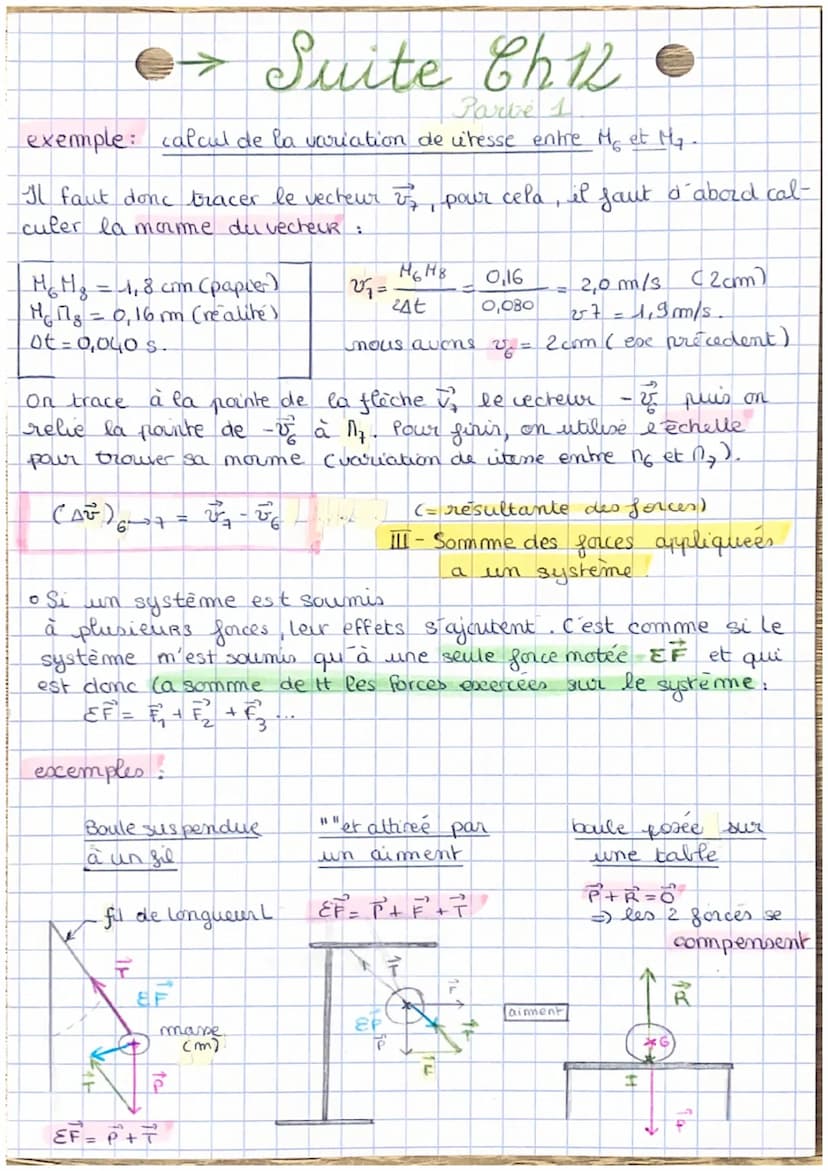 → Suite Ch 12
Partie 1
exemple: calcul de la variation de vitesse entre M₆ et M₇.
Il faut donc tracer le vecteur v⃗₇, pour cela, il faut d'abord cal-
culer la norme du vecteur :
M₆M₈ = 1,8 cm (papier)
M₆M₈ = 0,16 m (réalité)
Δt = 0,040 s.
v₇ = M₆M₈ / 2Δt = 0,16 / 0,080 = 2,0 m/s (2cm)
v7 = 1,9 m/s.
nous avons v₆ = 2cm (exe précedent)
On trace à la pointe de la flèche v⃗₇ le vecteur -v⃗₆ puis on
relie la pointe de -v⃗₆ à M₇. Pour finir, on utilise l'échelle
pour trouver sa norme (variation de vitesse entre M₆ et M₇).
(Δv⃗)₆→₇ = v⃗₇ - v⃗₆
(= résultante des forces)
III - Somme des forces appliquées
a un système.
• Si un système est soumis
à plusieurs forces, leur effets s'ajoutent. C'est comme si le
système n'est soumis qu'à une seule force notée ΣF⃗ et qui
est donc la somme de tt les forces exercées sur le système:
ΣF⃗ = F⃗₁ + F⃗₂ + F⃗₃ ...
exemples :
Boule suspendue
à un fil
fil de longueur L
T⃗
ΣF⃗
masse
(m)
T⃗
P⃗
ΣF⃗ = P⃗ + T⃗
" " et attireé par
un aiment
ΣF⃗ = P⃗ + F⃗ + T⃗
T⃗
F⃗
aiment
ΣF⃗
P⃗
T⃗
F⃗
boule posée sur
une table
P⃗ + R⃗ = 0⃗
⇒ les 2 forces se
compensent
R⃗
G
I
P⃗